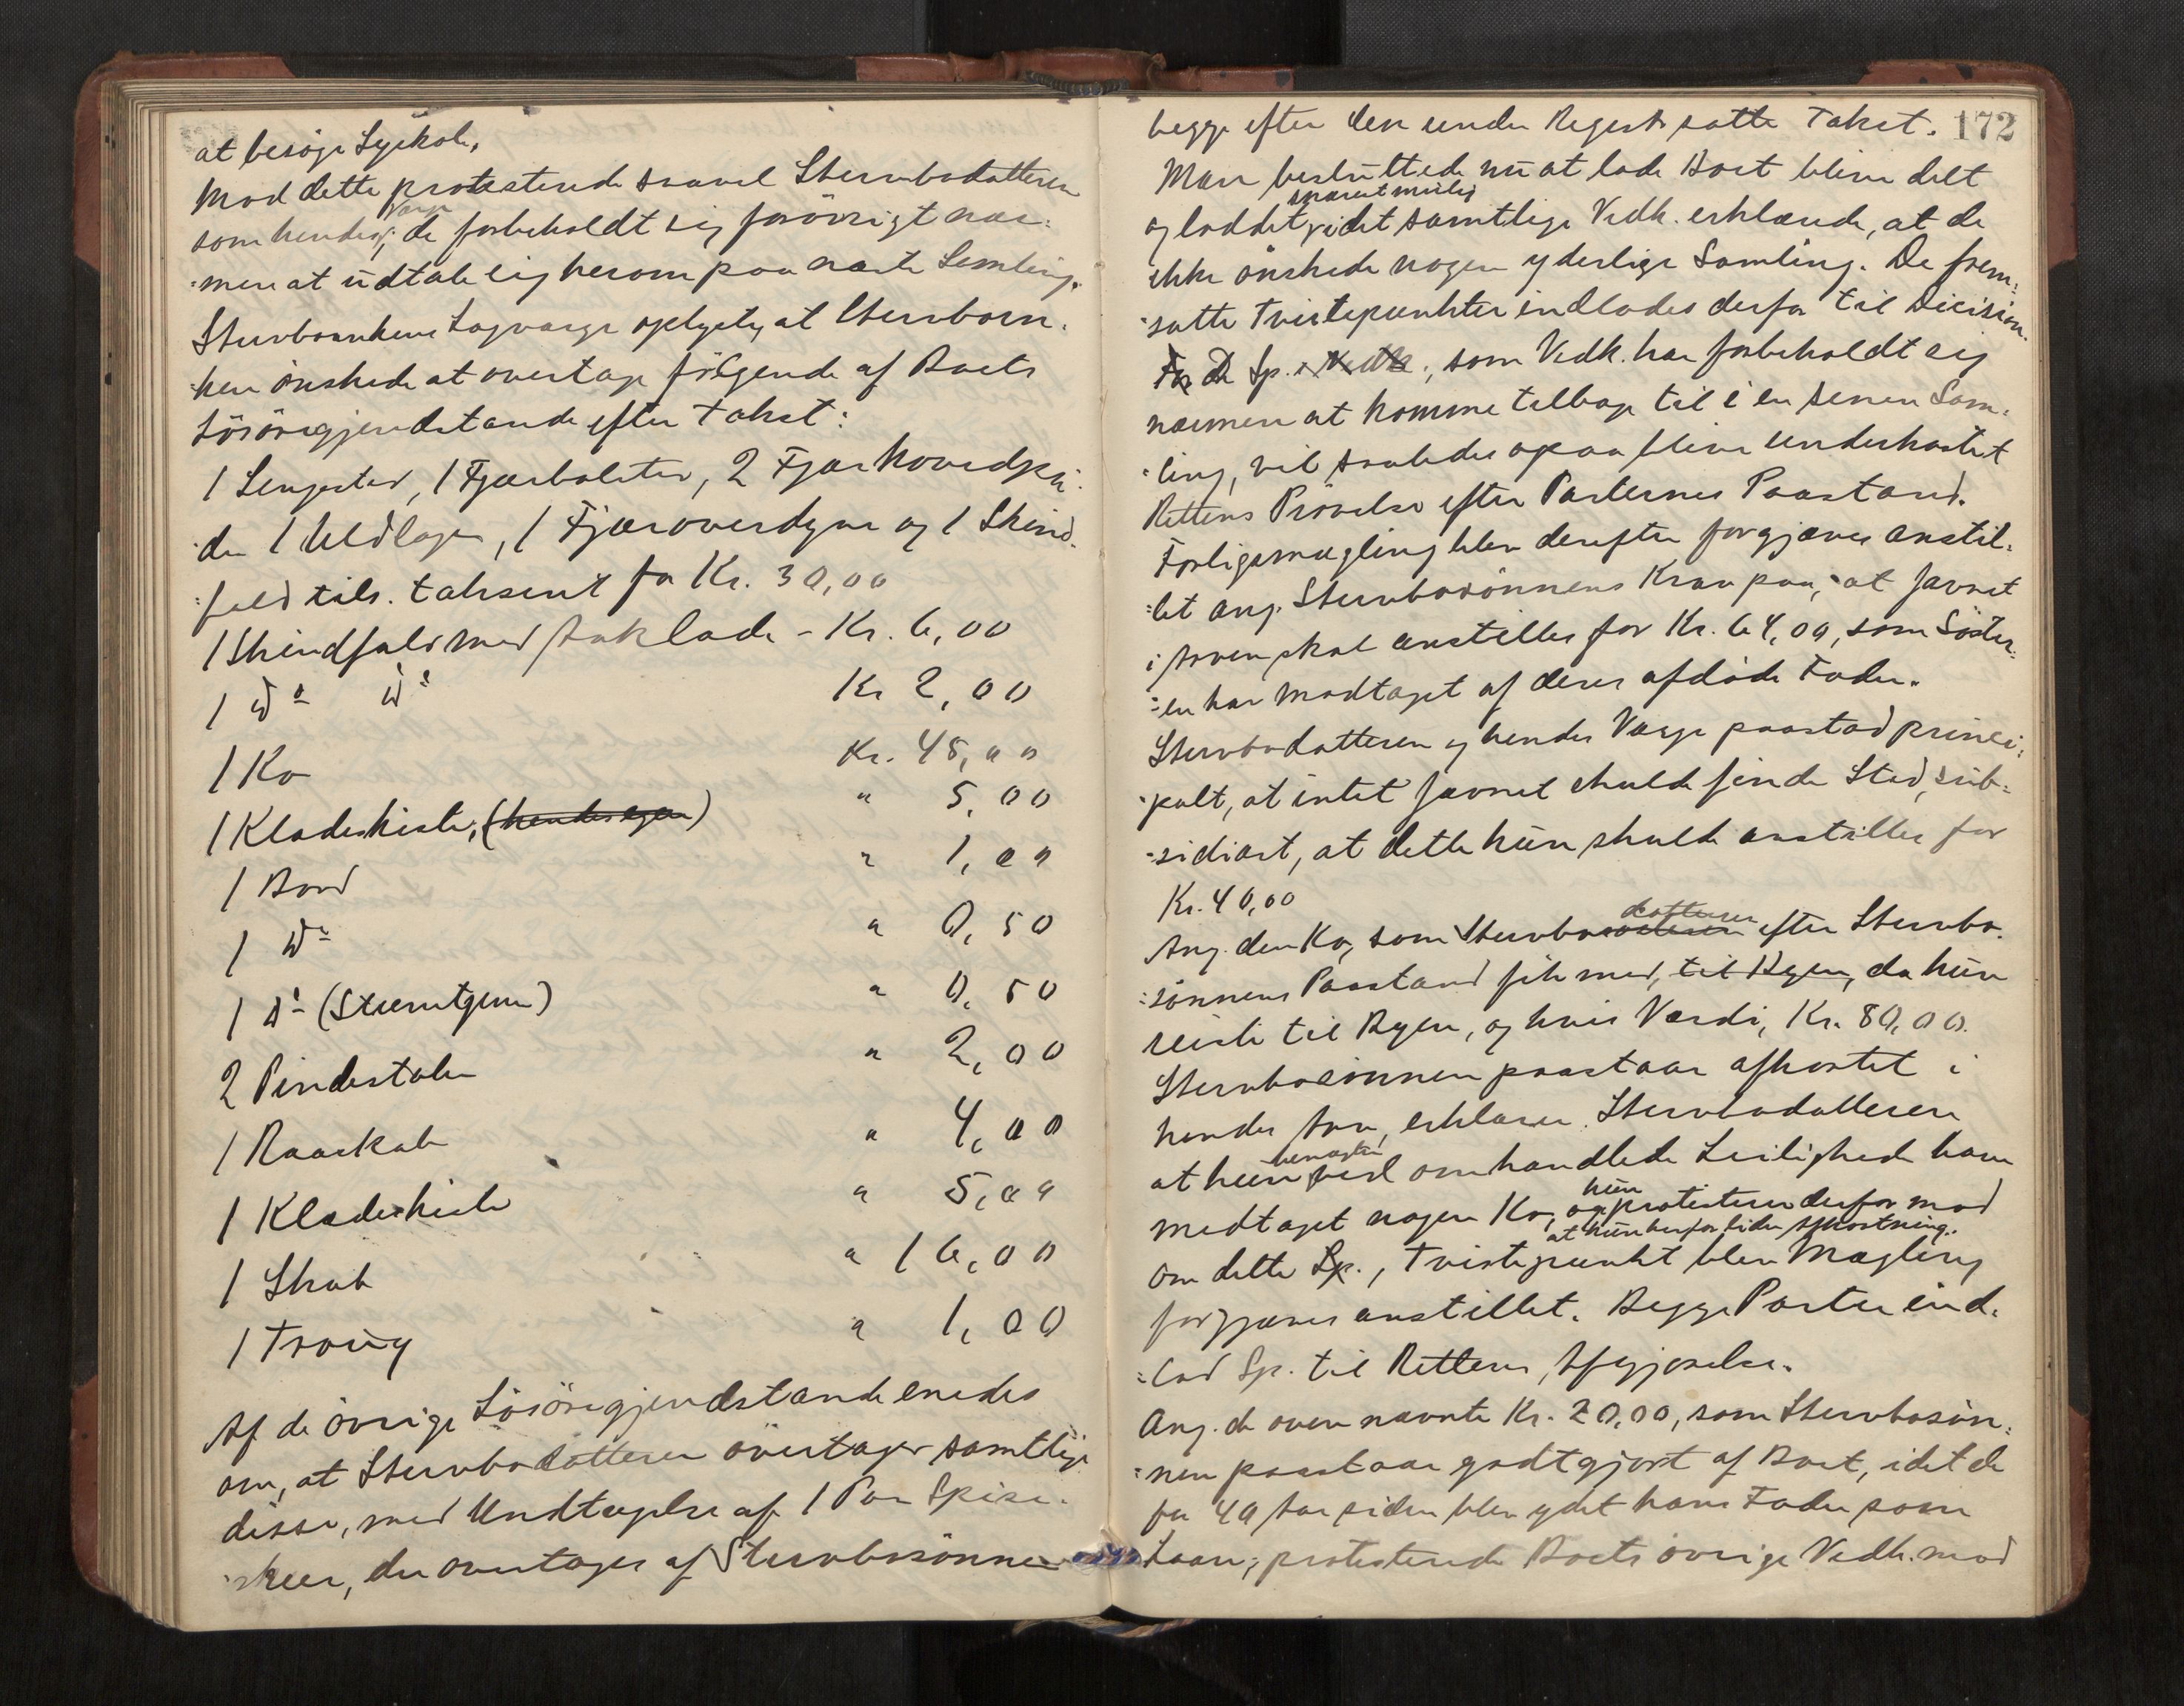 at besøge Syskole,
Mod dette protesterede saavel Stervbodatteren
som hendes Værge; de forbeholdt sig forøvrigt nær-
-mere at udtale sig herom paa næste Samling.
Stervboenkens Lagværge oplyste, at Stervboen-
-ken ønskede at overtage følgende af Boets
Løsøregjendstande efter Takst:
1 Sengested, 1 Fjærbolster, 2 Fjær Hovedpu-
-der 1 Uldlagen, 1 Fjæroverdyne og 1 Skind-
-feld tils. taxeret for Kr. 30,00
1 Skindfeld med Aaklæde - Kr. 6,00
1 do do Kr 2,00
1 Ko Kr. 45,00
1 Klædeskiste, (hendes egen) " 5,00
1 Bord " 1,00
1 do " 0,50
1 do (Stuentgem) " 0,50
2 Pindestole " 2,00
1 " 4,00
1 Klædeskiste " 5,00
1 Skab " 16,00
1 Traug " 1,00
Af de øvrige Løsøregjendstande enedes
om, at Stervbodatteren overtager samtlige
disse, med Undtagelse af 1 Par Spise-
-skeer, der overtages af Stervbosønnen
begge efter den under Regist. satte Takst. 172
Man besluttede nu at lade Boet blive delt
og loddet snarest mulig, idet samtlige Vedk. erklærede, at de
ikke ønskede nogen yderlige Samling. De frem-
-satte Tvistepunkter indlodes derfor til Decision.
De Sp., som Vedk. har forbeholdt sig
nærmere at komme tilbage til i en senere Sam-
-ling, vil saaledes ogsaa blive underkastet
Rettens Prøvelse efter Parternes Paastand.
Forligsmægling blev derefter forgjæves anstil-
-let ang. Stervbosønnens Krav paa, at Jævnet
i Arven skal anstilles for Kr. 64,00, som Søster-
-en har modtaget af deres afdøde Fader.
Stervbodatteren og hendes Værge paastod princi-
-palt, at intet Jævnet skulde finde Sted, sub-
-sidiært, at dette kun skulde anstilles for
Kr. 40,00
Ang. den Ko, som Stervbodatteren efter Stervbo-
-sønnens Paastand fik med, til Byen, da hun
reiste til Byen, og hvis Værdi, Kr. 80,00.
Stervbosønnen paastaar afkortet i
hendes Arv, erklærer Stervbodatteren
at hun benægter ved omhandlede Leilighed have
medtaget nogen Ko, og hun protesterer derfor mod
at hun herfor lider Afkortning.
Om dette Sp., Tvistepunkt blev Mægling
forgjæves anstillet. Begge Parter ind-
-lod Sp. til Rettens Afgjørelse.
Ang. de oven nævnte Kr. 20,00, som Stervbosøn-
-nen paastaar godtgjort af Boet, idet de
for 40 Aar siden blev ydet hans Fader som
Laan, protesterede Boets øvrige Vedk. mod